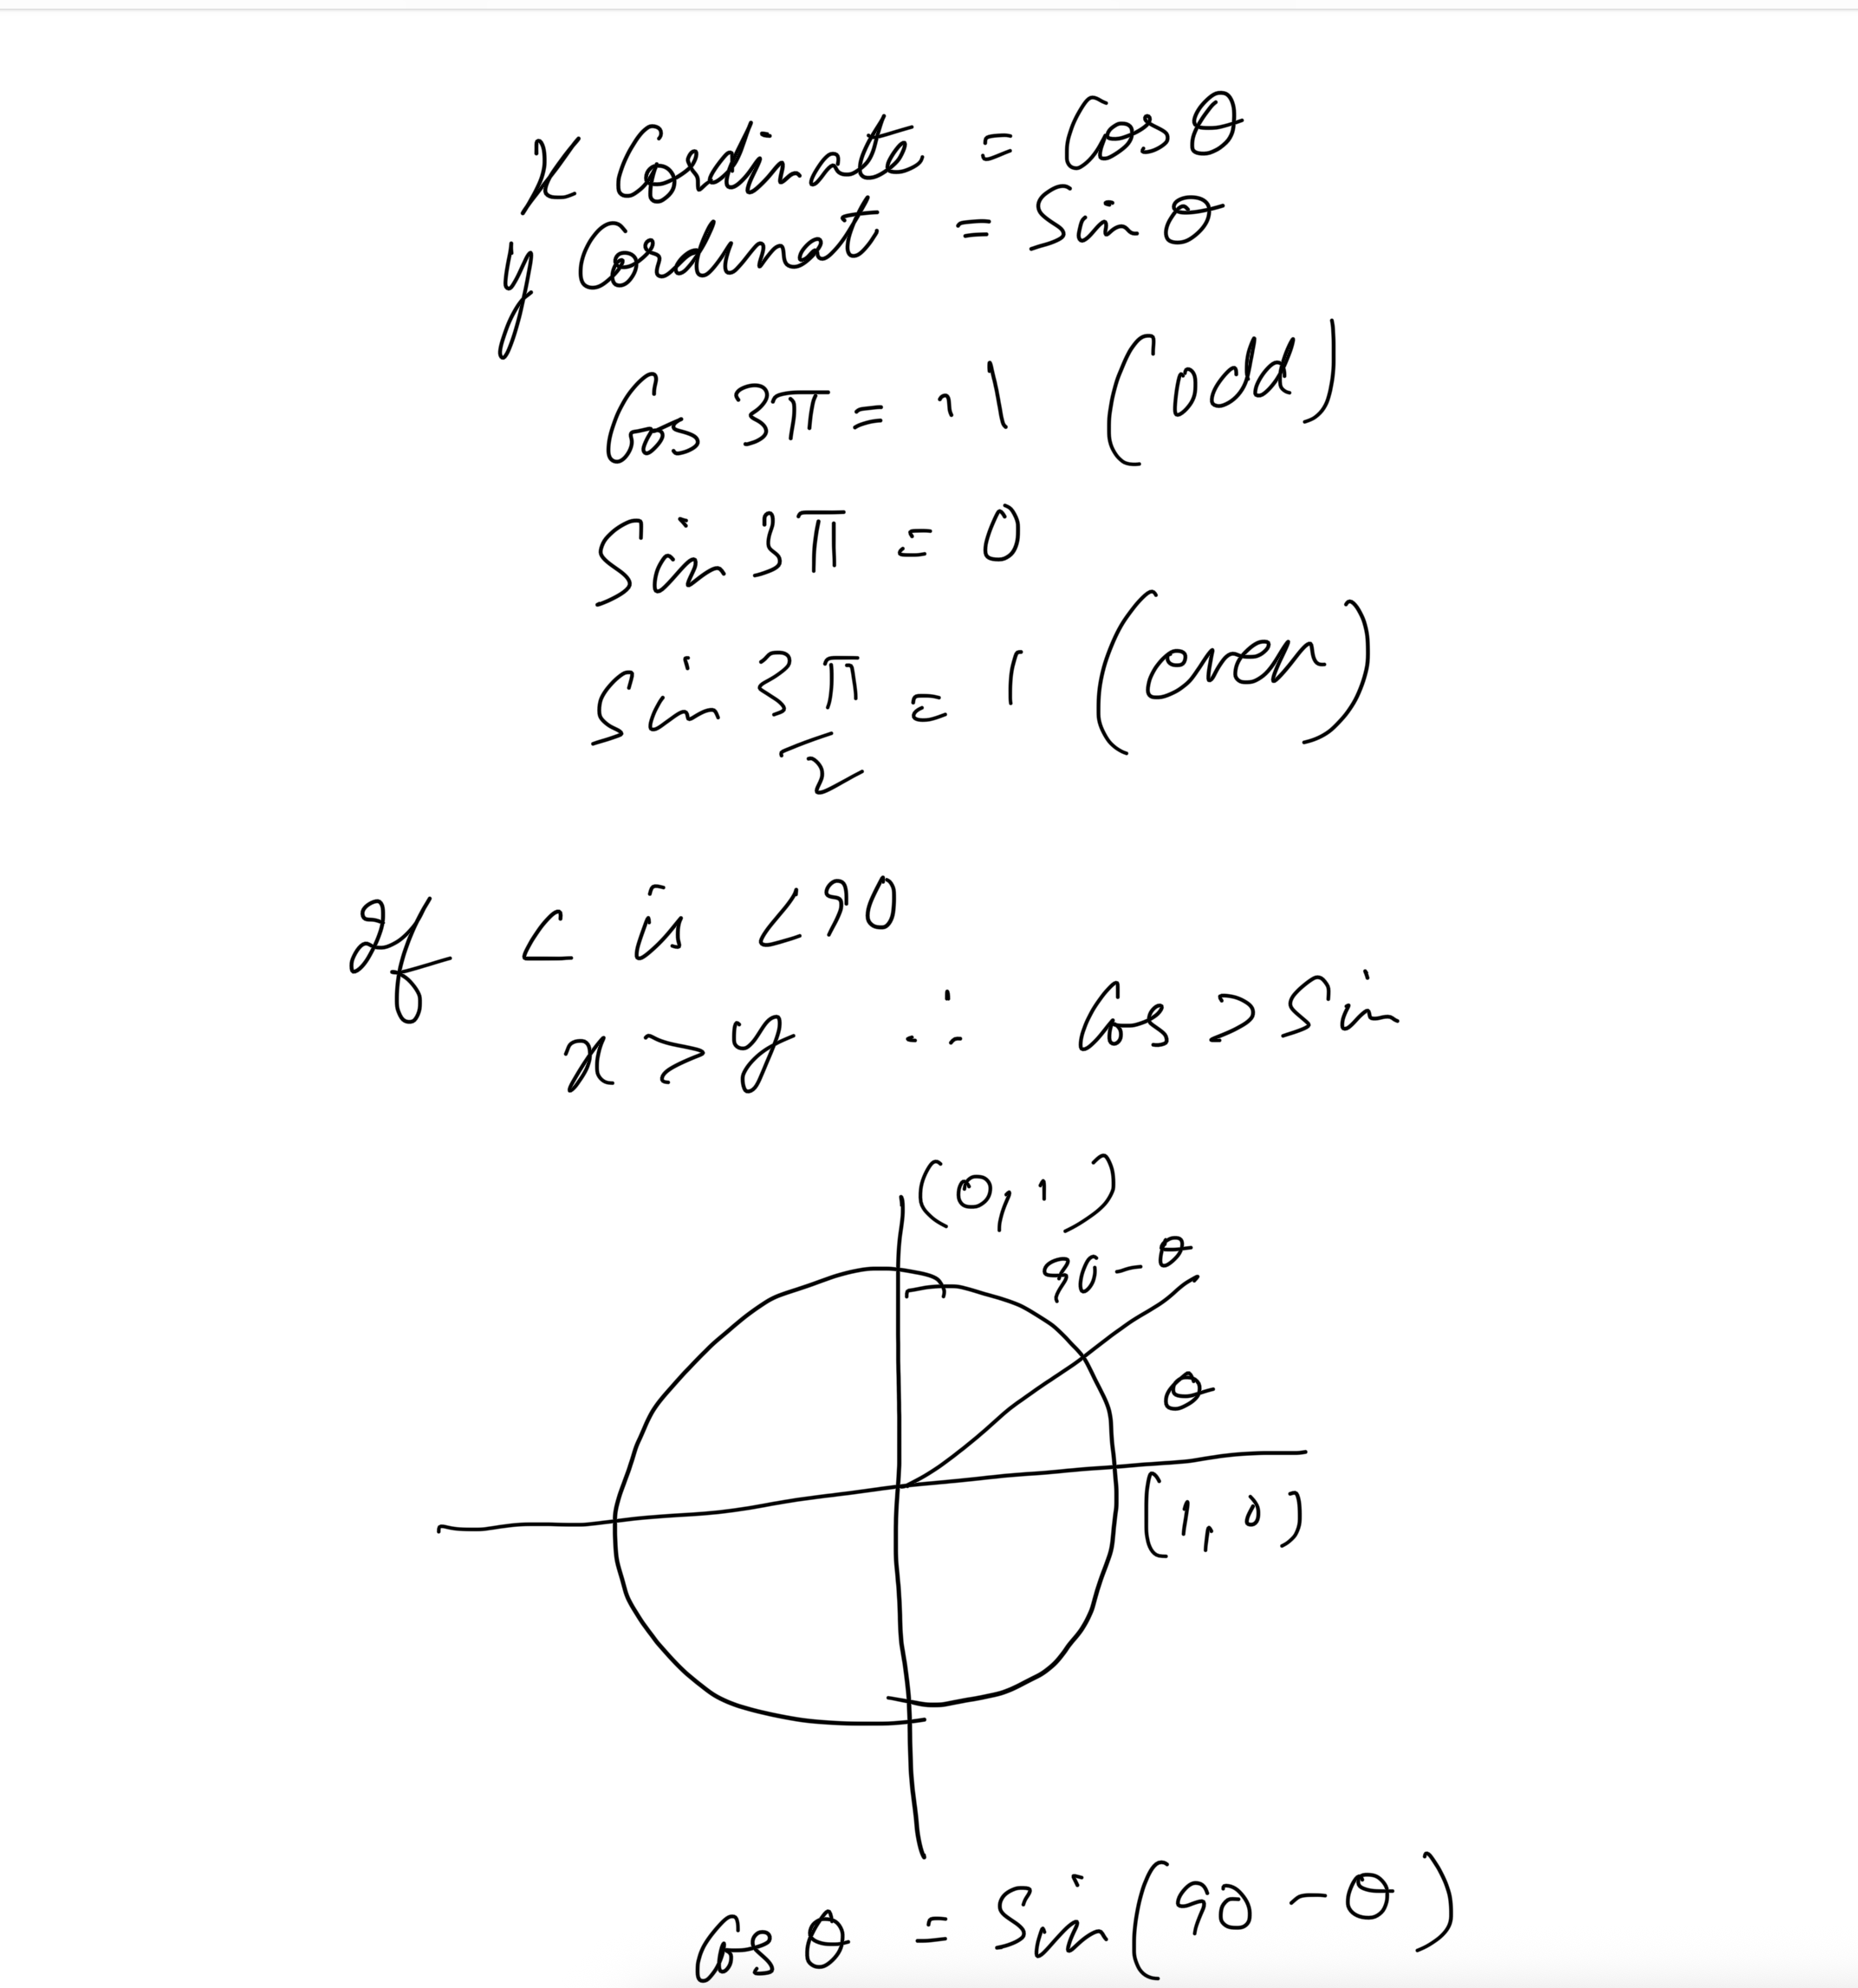 x Cordinate = Cos θ
y Cordinat = Sin θ
Cos 3π = -1 (odd)
Sin 3π = 0
Sin 3π/2 = 1 (even)
If ∠ is <90
x > y ∴ Cos > Sin
(0, 1)
90 - θ
θ
(1, 0)
Cos θ = Sin (90 - θ)